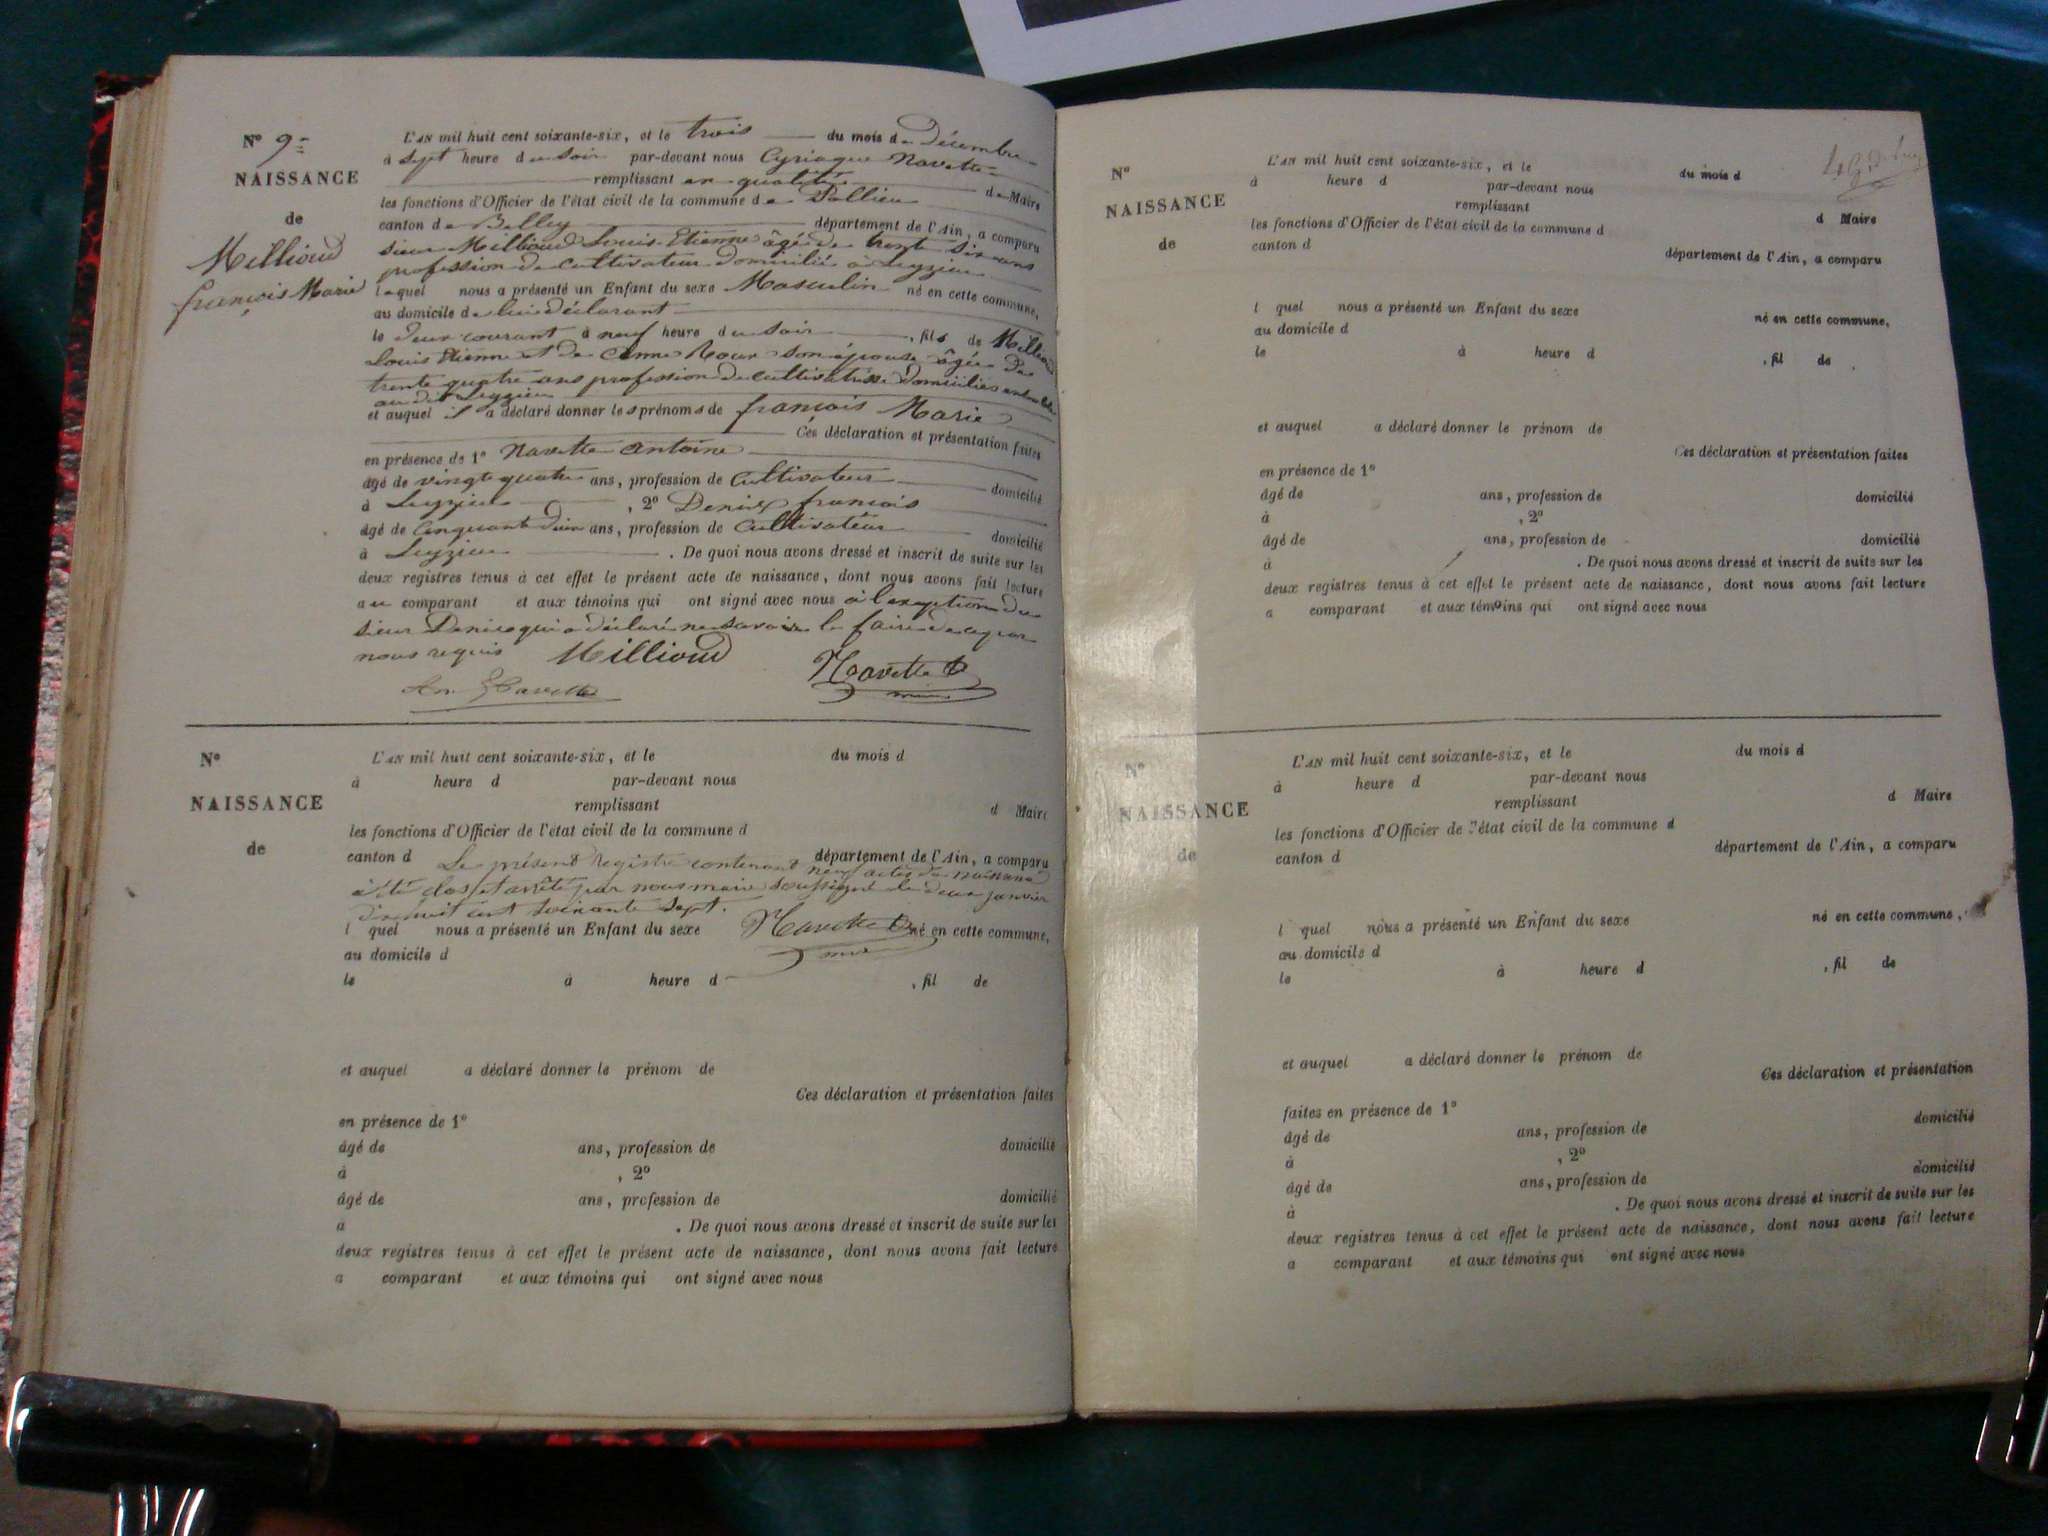 N° 9
NAISSANCE
de
Millioud
françois Marie
L'AN mil huit cent soixante-six, et le trois du mois de Décembre
à sept heure du soir par-devant nous Cyriaque Navette
remplissant en qualité de Maire
les fonctions d'Officier de l'état civil de la commune de Pollieu
canton de Belley département de l'Ain, a comparu
sieur Millioud Louis Etienne âgé de trente six ans
profession de cultivateur domicilié à Leyzieu
lequel nous a présenté un Enfant du sexe Masculin né en cette commune,
au domicile de lui déclarant
le deux courant à neuf heure du soir, fils de Millioud
Louis Etienne et de Anne Roux son épouse âgée de
trente quatre ans profession de cultivatrice domiciliés
au dit Leyzieu
et auquel il a déclaré donner les prénoms de françois Marie
Ces déclaration et présentation faites
en présence de 1° Navette Antoine
âgé de vingt quatre ans, profession de Cultivateur domicilié
à Leyzieu, 2° Denix françois
âgé de cinquante deux ans, profession de Cultivateur domicilié
à Leyzieu. De quoi nous avons dressé et inscrit de suite sur les
deux registres tenus à cet effet le présent acte de naissance, dont nous avons fait lecture
au comparant et aux témoins qui ont signé avec nous à l'exeption du
sieur Denix qui a déclaré ne savoir le faire de ce par
nous requis Millioud Navette C
An Navette
N°
NAISSANCE
de
L'AN mil huit cent soixante-six, et le du mois d
à heure d par-devant nous
remplissant d Maire
les fonctions d'Officier de l'état civil de la commune d
canton d département de l'Ain, a comparu
Le présent registre contenant neuf actes de naissance
a été clos et arrêté par nous maire soussigné le deux janvier
dix huit cent soixante sept.
l quel nous a présenté un Enfant du sexe né en cette commune,
Navette C
au domicile d
le à heure d , fil de
et auquel a déclaré donner le prénom de
Ces déclaration et présentation faites
en présence de 1°
âgé de ans, profession de domicilié
à , 2°
âgé de ans, profession de domicilié
à . De quoi nous avons dressé et inscrit de suite sur les
deux registres tenus à cet effet le présent acte de naissance, dont nous avons fait lecture
a comparant et aux témoins qui ont signé avec nous
N°
NAISSANCE
de
L'AN mil huit cent soixante-six, et le du mois d
à heure d par-devant nous
remplissant d Maire
les fonctions d'Officier de l'état civil de la commune d
canton d département de l'Ain, a comparu
l quel nous a présenté un Enfant du sexe né en cette commune,
au domicile d
le à heure d , fil de
et auquel a déclaré donner le prénom de
Ces déclaration et présentation faites
en présence de 1°
âgé de ans, profession de domicilié
à , 2°
âgé de ans, profession de domicilié
à . De quoi nous avons dressé et inscrit de suite sur les
deux registres tenus à cet effet le présent acte de naissance, dont nous avons fait lecture
a comparant et aux témoins qui ont signé avec nous
N°
NAISSANCE
de
L'AN mil huit cent soixante-six, et le du mois d
à heure d par-devant nous
remplissant d Maire
les fonctions d'Officier de l'état civil de la commune d
canton d département de l'Ain, a comparu
l quel nous a présenté un Enfant du sexe né en cette commune,
au domicile d
le à heure d , fil de
et auquel a déclaré donner le prénom de
Ces déclaration et présentation
faites en présence de 1°
âgé de ans, profession de domicilié
à , 2°
âgé de ans, profession de domicilié
à . De quoi nous avons dressé et inscrit de suite sur les
deux registres tenus à cet effet le présent acte de naissance, dont nous avons fait lecture
a comparant et aux témoins qui ont signé avec nous